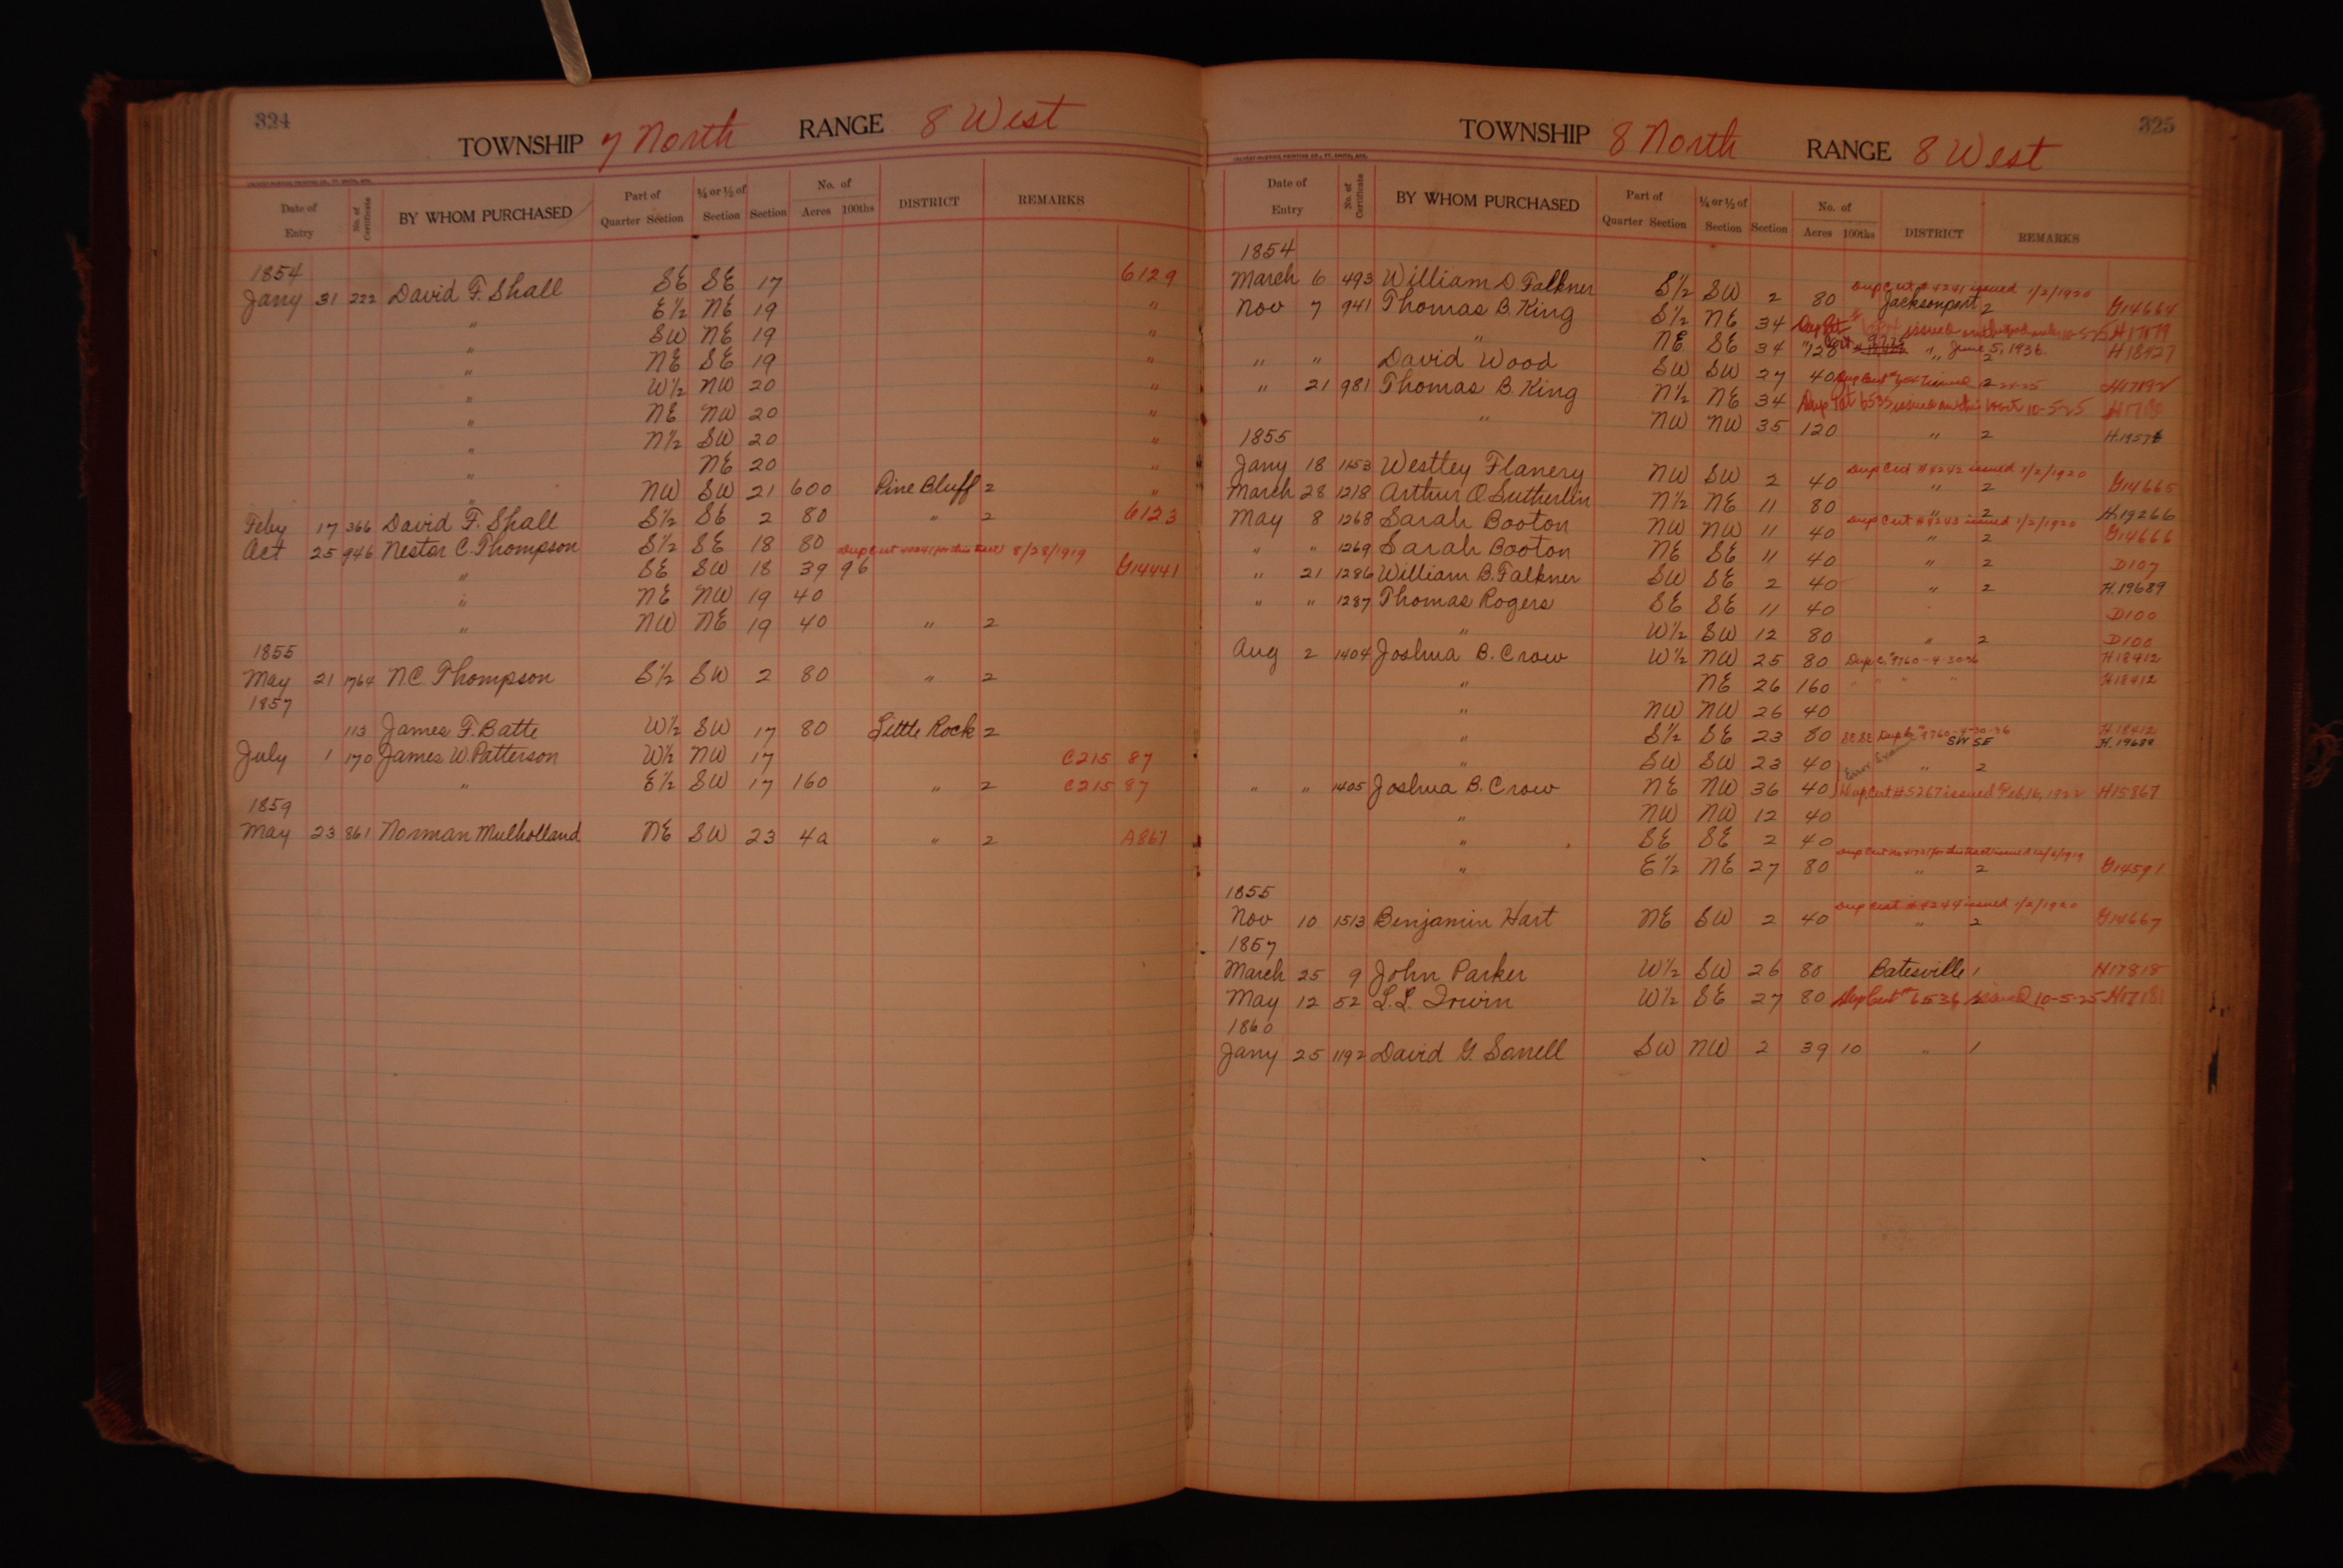 324
TOWNSHIP 7 North RANGE 8 West
Date of Entry No. of Certificate BY WHOM PURCHASED Part of Quarter Section ¼ or ½ of Section Section No. of Acres 100ths DISTRICT REMARKS
1854 6129
Jany 31 222 David F. Shall SE SE 17
" E½ NE 19 "
" SW NE 19 "
" NE SE 19 "
" W½ NW 20 "
" NE NW 20 "
" N½ SW 20 "
" NE 20 "
" NW SW 21 600 Pine Bluff 2 "
Feby 17 366 David F. Shall S½ SE 2 80 " 2 6123
Oct 25 946 Nestor C. Thompson S½ SE 18 80 Dup Cert for this tract 8/28/1919
" SE SW 18 39 96 G14441
" NE NW 19 40
" NW NE 19 40 " 2
1855
May 21 1764 N.C. Thompson S½ SW 2 80 " 2
1857
113 James F. Batte W½ SW 17 80 Little Rock 2
July 1 170 James W. Patterson W½ NW 17 C215 87
" E½ SW 17 160 " 2 C215 87
1859
May 23 861 Norman Mulholland NE SW 23 40 " 2 A867
325
TOWNSHIP 8 North RANGE 8 West
Date of Entry No. of Certificate BY WHOM PURCHASED Part of Quarter Section ¼ or ½ of Section Section No. of Acres 100ths DISTRICT REMARKS
1854
Dup Cert #4241 issued 1/2/1920
March 6 493 William D Falkner S½ SW 2 80 Jacksonport 2 G14664
Nov 7 941 Thomas B. King S½ NE 34 issued 10-5-25
" NE SE 34 120 " June 5, 1936. 2 H18427
" " David Wood SW SW 27 40 Dup Cert issued
" 21 981 Thomas B. King N½ NE 34 Dup 6535 issued 10-5-25
" NW NW 35 120 " 2
1855
Dup Cert #4242 issued 1/2/1920
Jany 18 1153 Westley Flanery NW SW 2 40 " 2 G14665
March 28 1218 Arthur O Sutherlin N½ NE 11 80 " 2 H.19266
Dup Cert #4243 issued 1/2/1920
May 8 1268 Sarah Booton NW NW 11 40 " 2 G14666
" " 1269 Sarah Booton NE SE 11 40 " 2 D107
" 21 1286 William B. Falkner SW SE 2 40 " 2 H.19689
" " 1287 Thomas Rogers SE SE 11 40 D100
" W½ SW 12 80 " 2 D100
Aug 2 1404 Joshua B. Crow W½ NW 25 80 Dup C. #9760-4-30-36 H18412
" NE 26 160 " " " " H18412
" NW NW 26 40
" S½ SE 23 80 SE SE Dup C. #9760-4-30-36 H18412
SW SE H.19689
" SW SW 23 40 " 2
" " 1405 Joshua B. Crow NE NW 36 40 Dup Cert #5267 issued Feb 16, 1922 H15867
" NW NW 12 40
" SE SE 2 40
Dup Cert for this tract issued
" E½ NE 27 80 " 2 G14591
1855
Dup Cert #4244 issued 1/2/1920
Nov 10 1513 Benjamin Hart NE SW 2 40 " 2 G14667
1857
March 25 9 John Parker W½ SW 26 80 Batesville 1 H17818
May 12 52 L.L. Irwin W½ SE 27 80 Dup Cert #6536 issued 10-5-25 H17181
1860
Jany 25 1192 David G. Sorrell SW NW 2 39 10 " 1